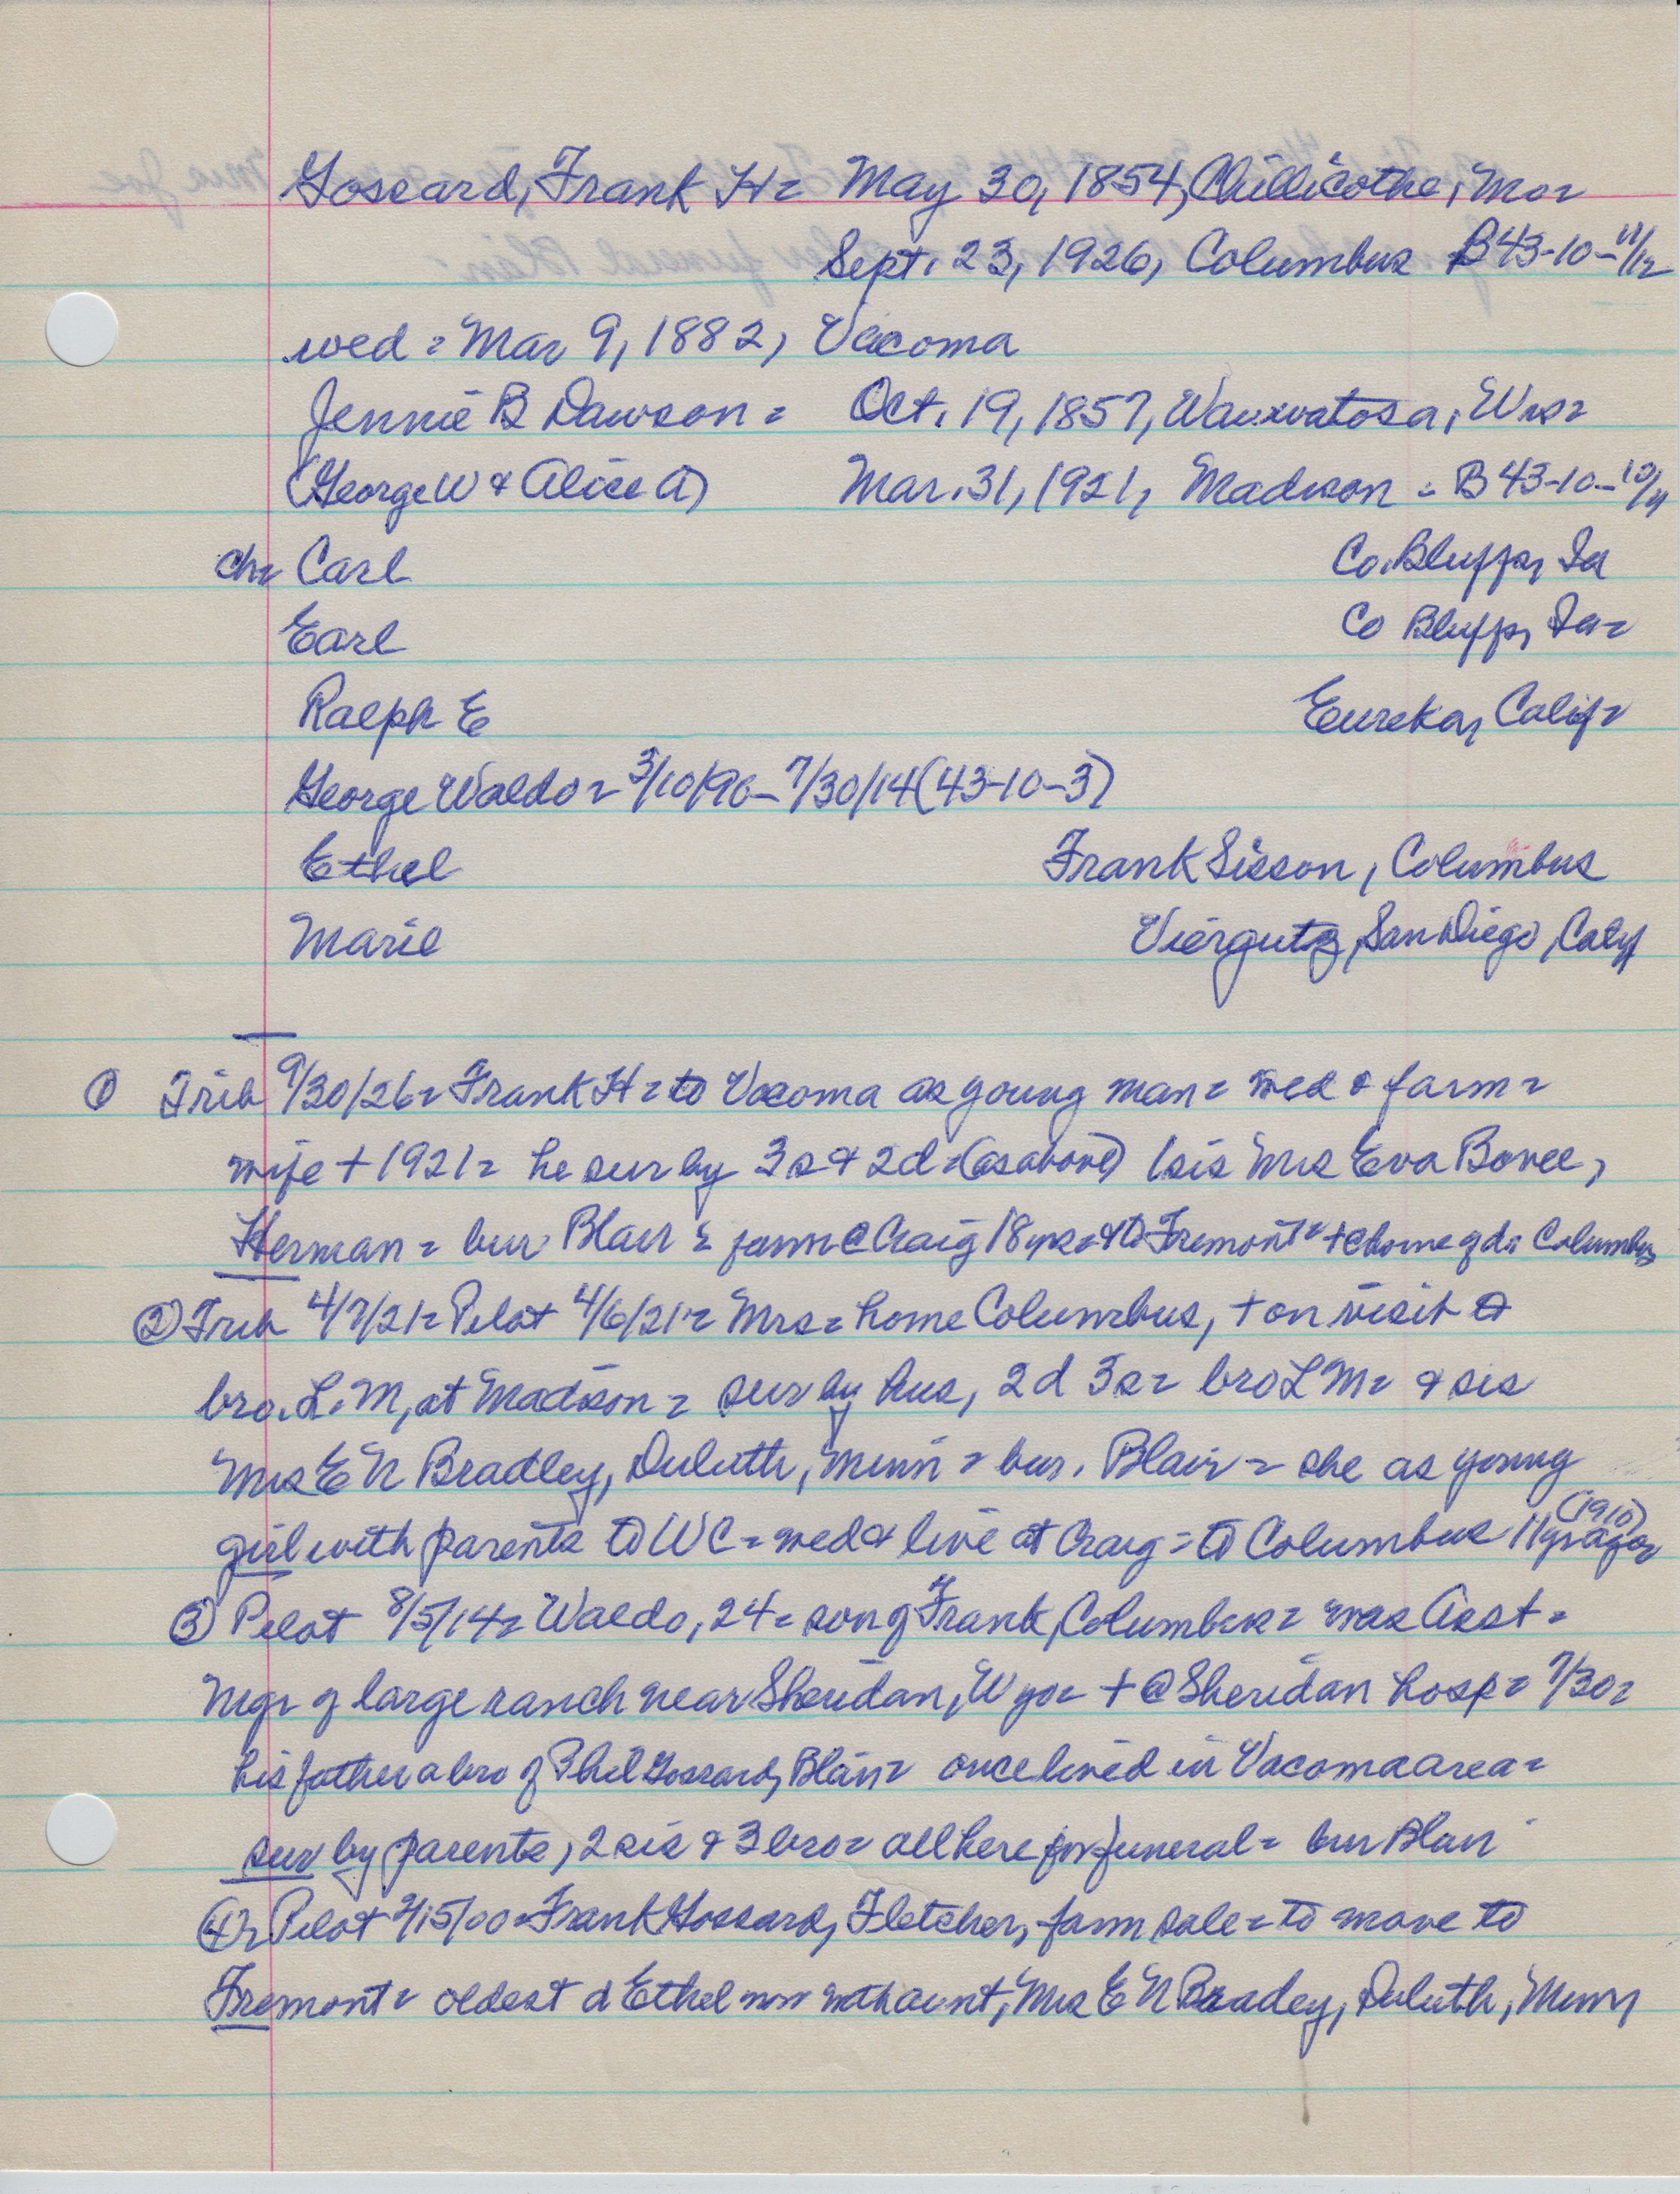 Gossard, Frank H = May 30, 1854, Chillicothe, Mo =
Sept. 23, 1926, Columbus B 43-10-11/12
wed = Mar 9, 1882, Vacoma
Jennie B Dawson = Oct. 19, 1857, Wauwatosa, Wis =
(George W & Alice A) Mar. 31, 1921, Madison = B 43-10-10/11
ch = Carl Co. Bluffs, Ia
Earl Co Bluffs, Ia =
Ralph E Eureka, Calif =
George Waldo = 3/10/90 - 7/30/14 (43-10-3)
Ethel Frank Sisson, Columbus
Marie Viergutz, San Diego, Calif
① Trib 9/30/26 = Frank H = to Vacoma as young man = wed & farm =
wife + 1921 = he sur by 3s & 2d = (as above) 1 sis Mrs Eva Bovee,
Herman = bur Blair = farm @ Craig 18 yrs = & to Fremont = + @ home of d = Columbus
② Trib 4/7/21 = Pilot 4/6/21 = Mrs = home Columbus, + on visit to
bro. L. M, at Madison = sur by hus, 2d 3s = bro L M = & sis
Mrs E N Bradley, Duluth, Minn = bur. Blair = she as young
girl with parents to WC = wed & live at Craig = to Columbus 11 yrs ago (1910)
③ Pilot 8/5/14 = Waldo, 24 = son of Frank, Columbus = was Asst =
Mgr of large ranch near Sheridan, Wyo = + @ Sheridan hosp = 7/30 =
his father a bro of Phil Gossard, Blair = once lived in Vacoma area =
sur by parents, 2 sis & 3 bro = all here for funeral = bur Blair
④ = Pilot 2/15/00 = Frank Gossard, Fletcher, farm sale = to move to
Fremont = oldest d Ethel now with aunt, Mrs E N Bradey, Duluth, Minn